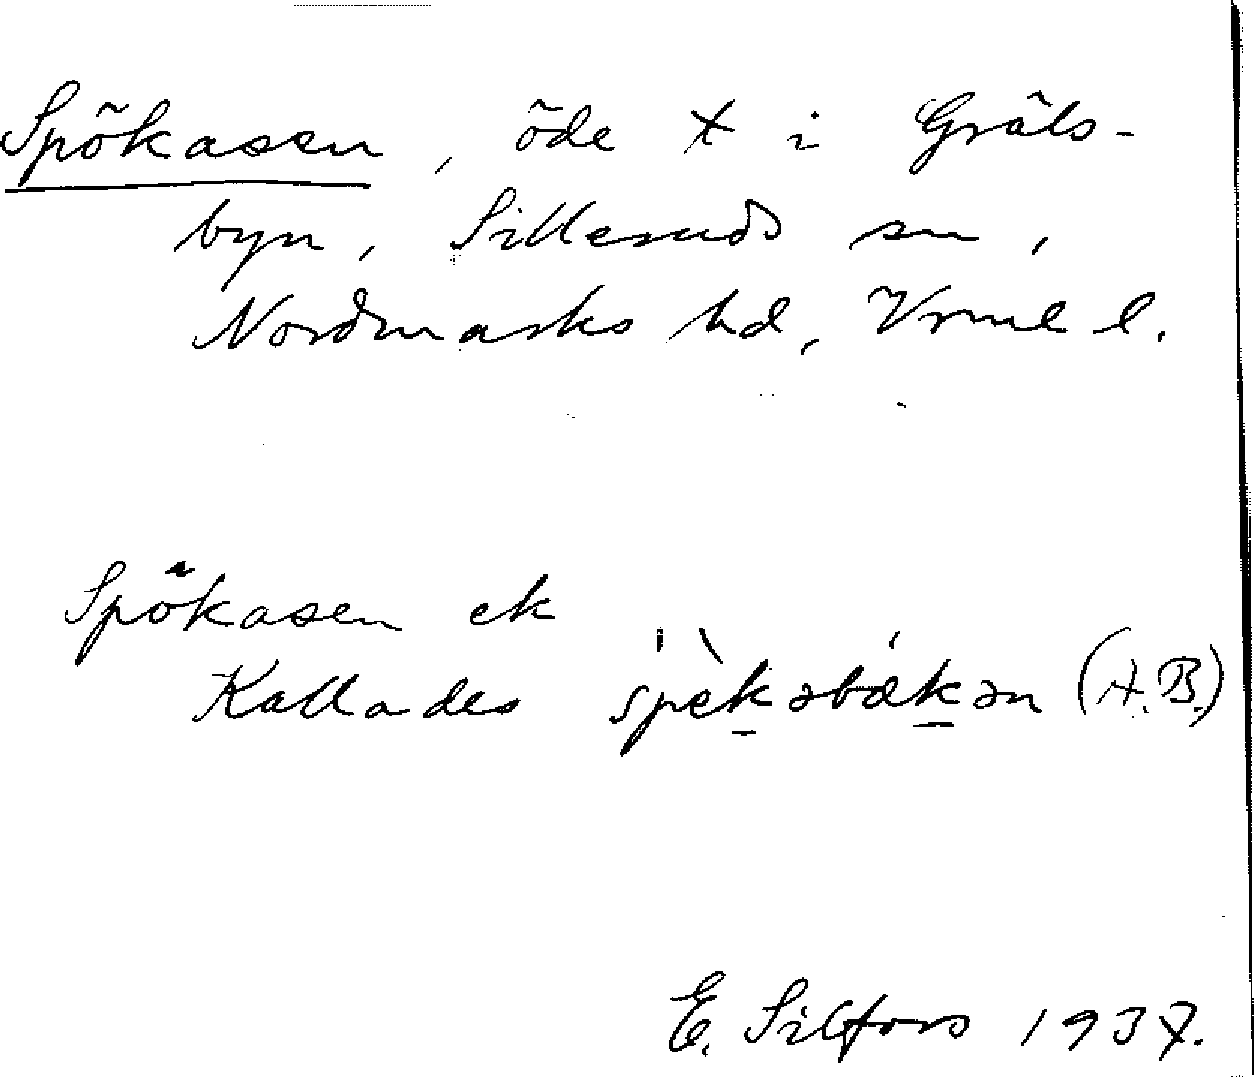 Spökasen, öde t i Gräls-
byn, Silleruds sn,
Nordmarks hd, Vrml l.
Spökasen ek
Kallades (A.B.)
E. Silfors 1937.